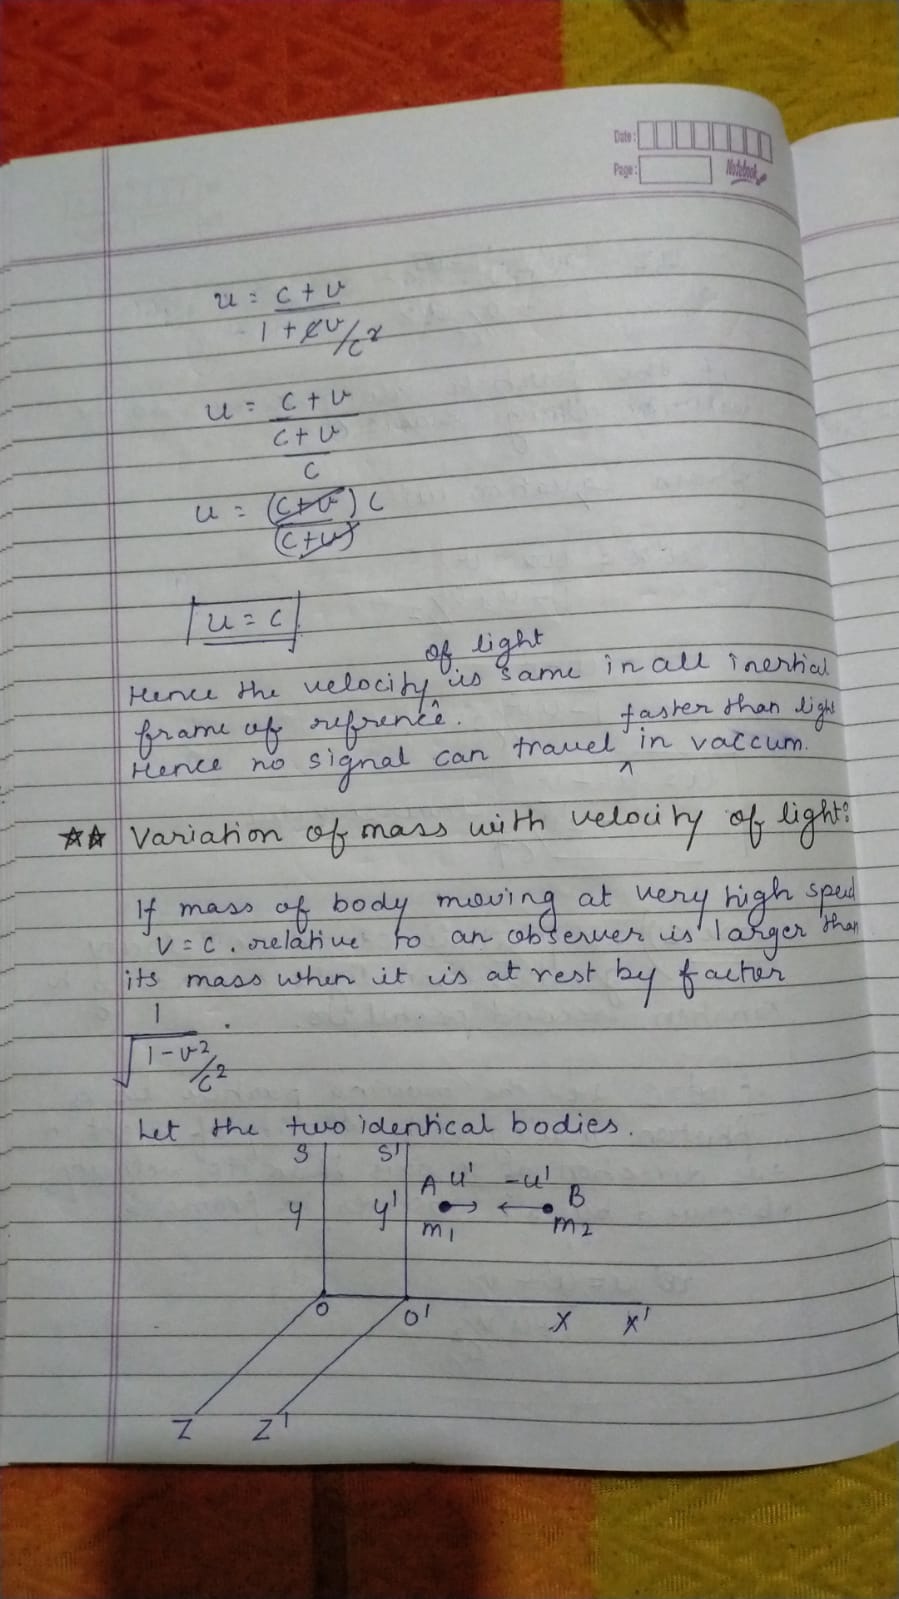 Date:
Page:
Notebook
u = c + v
1 + cv/c²
u = c + v
c + v
c
u = (c+v) c
(c+v)
u = c
of light
Hence the velocity is same in all inertial
frame of refrence.
faster than light
Hence no signal can travel ^ in vaccum.
☆☆ Variation of mass with velocity of light:
If mass of body moving at very high speed
v = c. relative to an observer is larger than
its mass when it is at rest by factor
1
√1-v²/c² .
Let the two identical bodies.
S S'
A u' -u' B
y y' m₁ m₂
O O' X X'
Z Z'